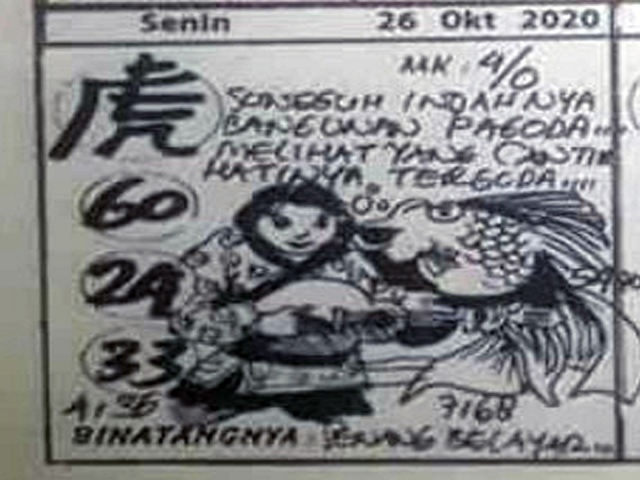 Senin 26 Okt 2020
MK : 4/0
虎
SUNGGUH INDAHNYA
BANGUNAN PAGODA....
MELIHAT YANG CANTIK
HATINYA TERGODA....
60
29
33
7168
BINATANGNYA :